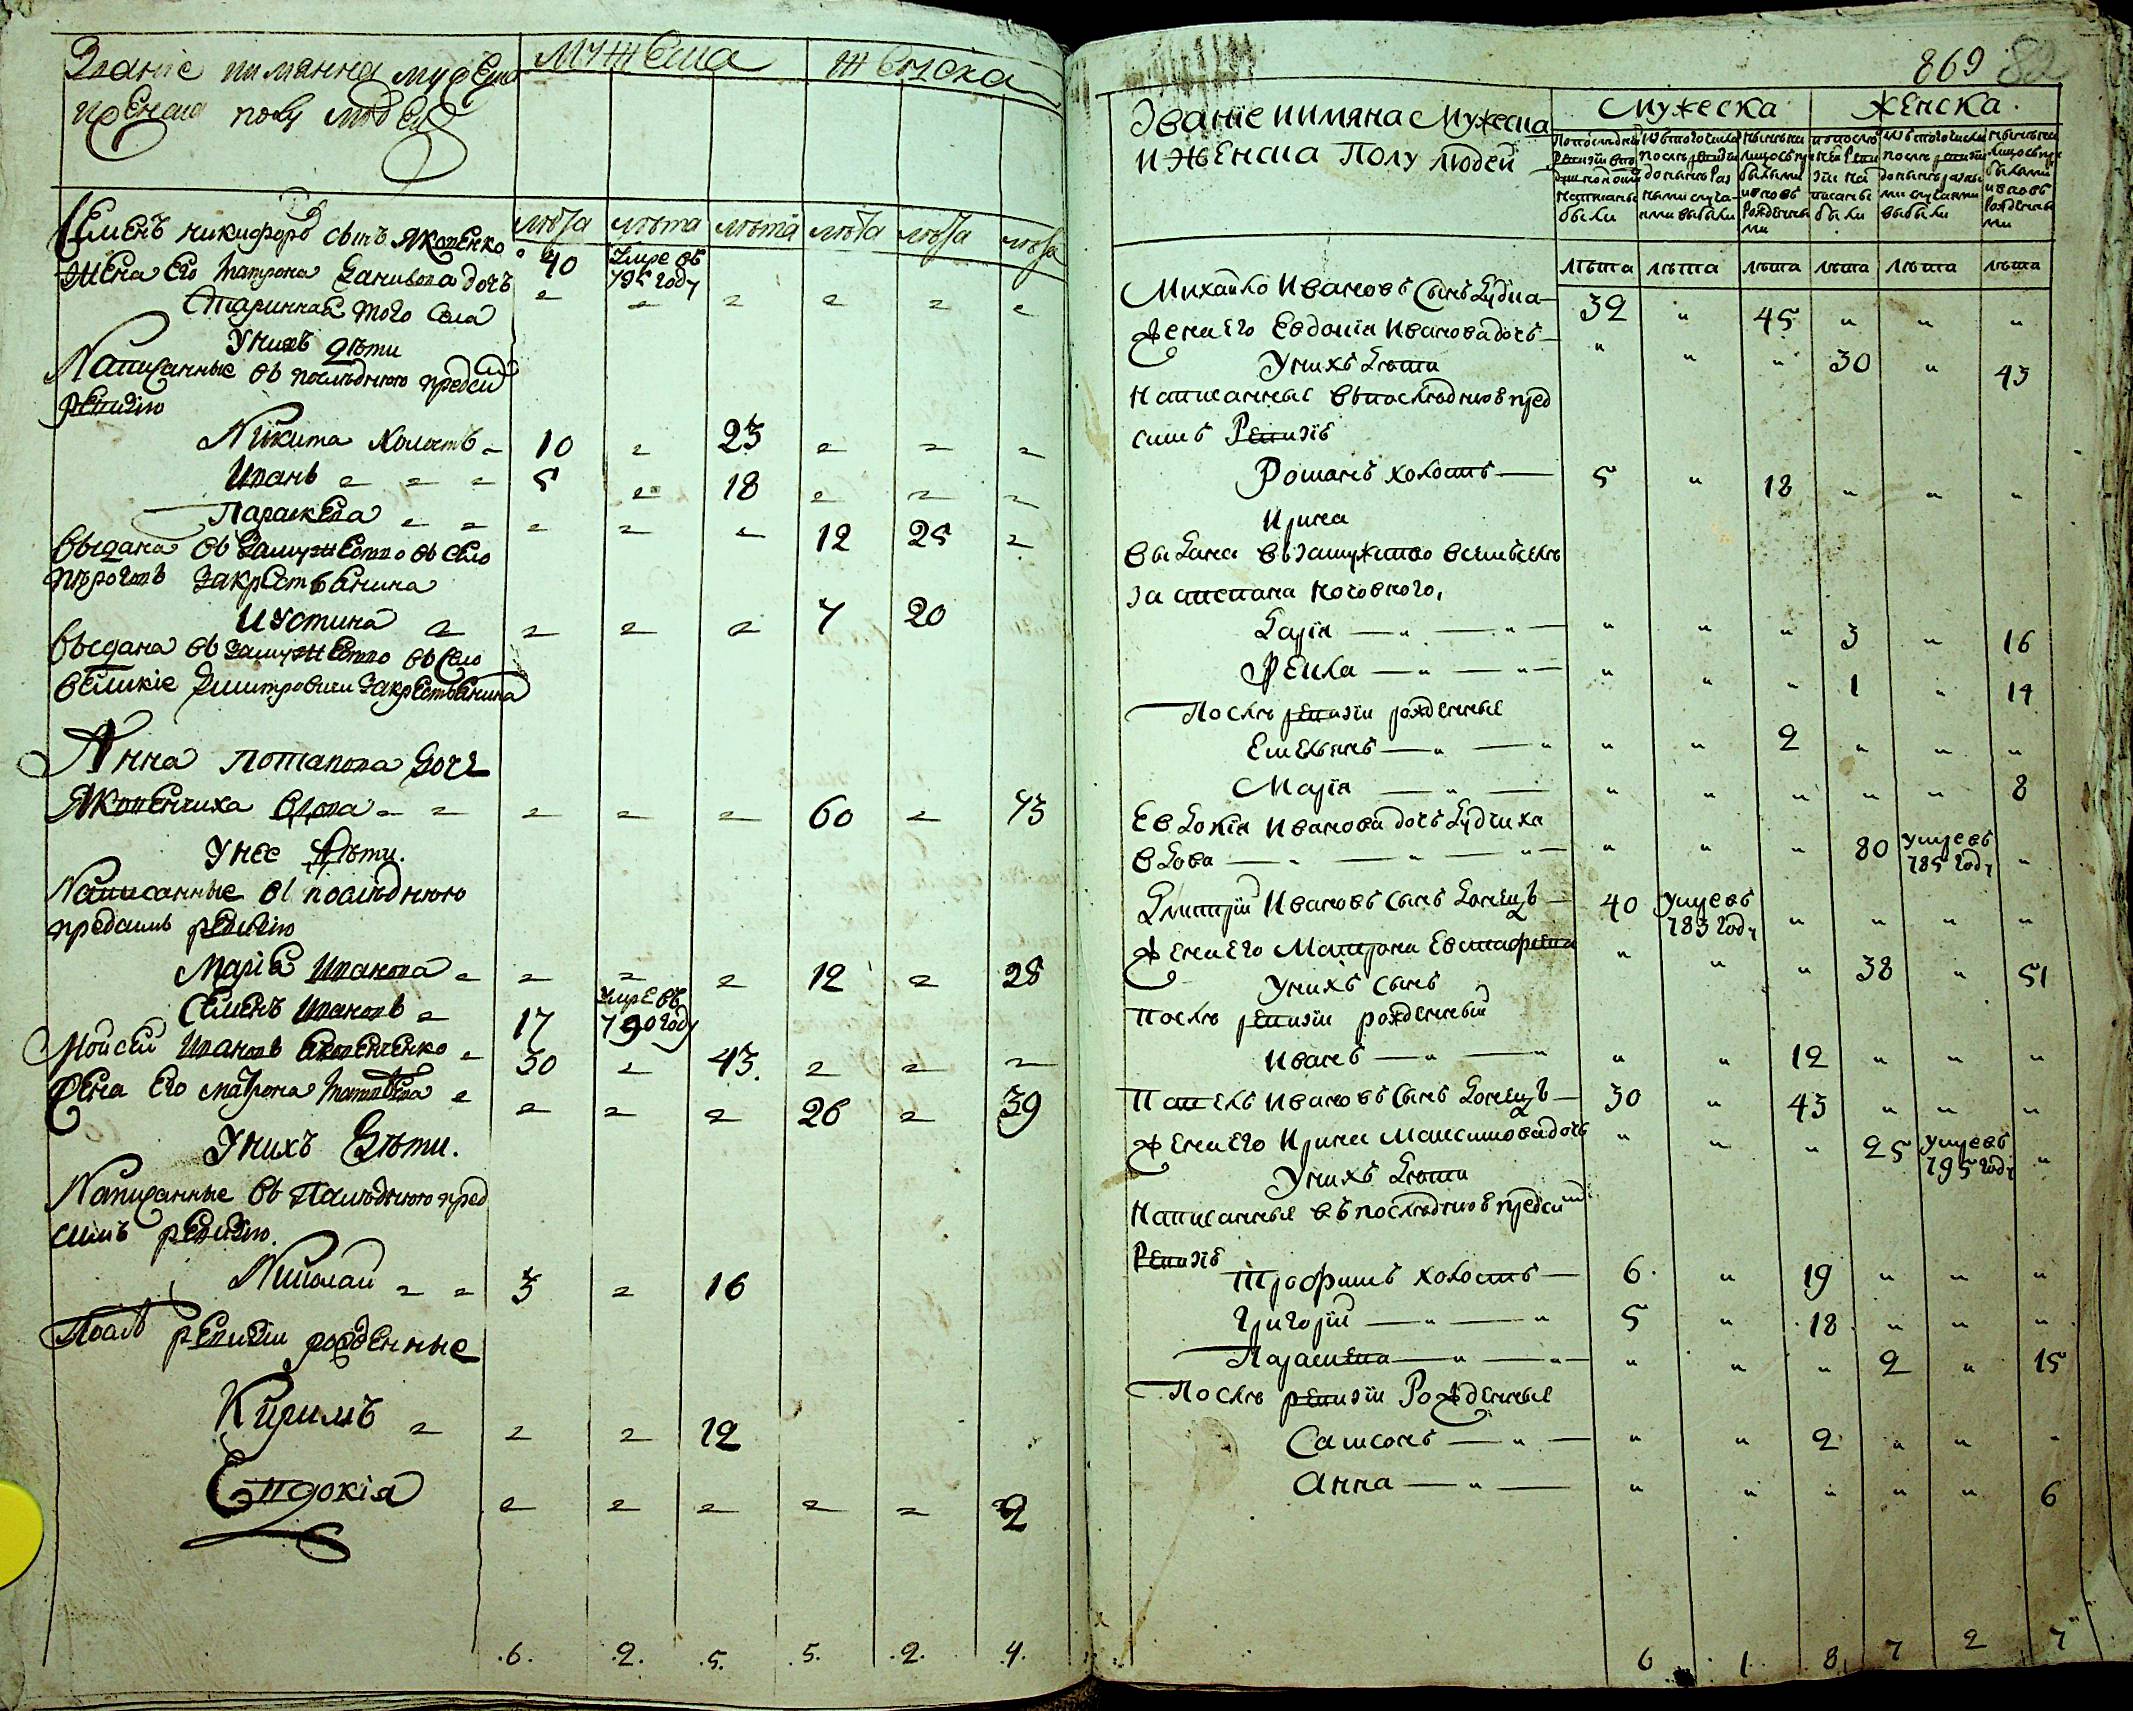 Званіе иимянна мужеска
иженска полу людей
мужеска
женска
лѣта лѣта лѣта лѣта лѣта лѣта
Семенъ никифоро сынъ Яковенко 40 Умре въ 795 году
жена Его данилова дочъ
Старинная того села
Унихъ дѣти
Написанные въ последнюю пред сим
ревизію
Никита Холостъ 10 23
Иванъ 5 18
Параскева 12 25
выдана въ замужество въ село
закрестьянина
Иустина 7 20
выдана въ замужество въ село
великіе закрестьянина
Анна потапова дочь
Яковенчиха вдова 60 73
Унее дѣти.
Написанные въ последнюю
предсимъ ревизію
Марія Иванова 12 28
Семенъ Ивановъ 17 умре въ 790 году
Мойсей Ивановъ Яковенченко 30 43.
Жена Его матрона 26 39
Унихъ Дѣти.
Написанные въ Последнюю пред
симъ ревизію.
Николай 3 16
Послѣ ревизіи рожденные
Кирилъ 12
Евдокія 2
.6. .2. .5. .5. .2. .4.
869
Званіе иимяна Мужеска
и женска Полу людей
Мужеска
женска.
лѣта лѣта лѣта лѣта лѣта лѣта
Михайло Ивановъ Сынъ 32 " 45 " " "
Жена Его Евдокіа Иванова дочъ " " " 30 " 43
Унихъ Дѣти
Написанные въпоследнюю пред
симъ Ревизію
Романъ холостъ 5 " 18 " " "
Ирина
выдана взамужство
за степана
Дарія " " " 3 " 16
Фекла " " " 1 " 14
Послѣ ревизіи рожденные
Емельянъ " " 2 " " "
Марія " " " " " 8
Евдокіа Иванова дочъ
вдова " " " 80 умре въ 785 году "
Дмитрій Ивановъ сынъ Донецъ 40 умре въ 783 году " " " "
Жена Его Матрона Евстафиева " " " 38 " 51
Унихъ сынъ
Послѣ ревизіи рожденный
Иванъ " " 12 " " "
Павелъ Ивановъ Сынъ Донецъ 30 " 43 " " "
Жена Его Ирина Максимова дочъ " " " 25 умре въ 795 году "
Унихъ Дѣти
Написанные въ последнюю предсим
Ревизію
Трофимъ холостъ 6. " 19 " " "
Григорій 5 " 18 " " "
Параскева " " " 2 " 15
Послѣ ревизіи Рожденные
Самсонъ " " 2 " " "
Анна " " " " " 6
6 1 8 7 2 7